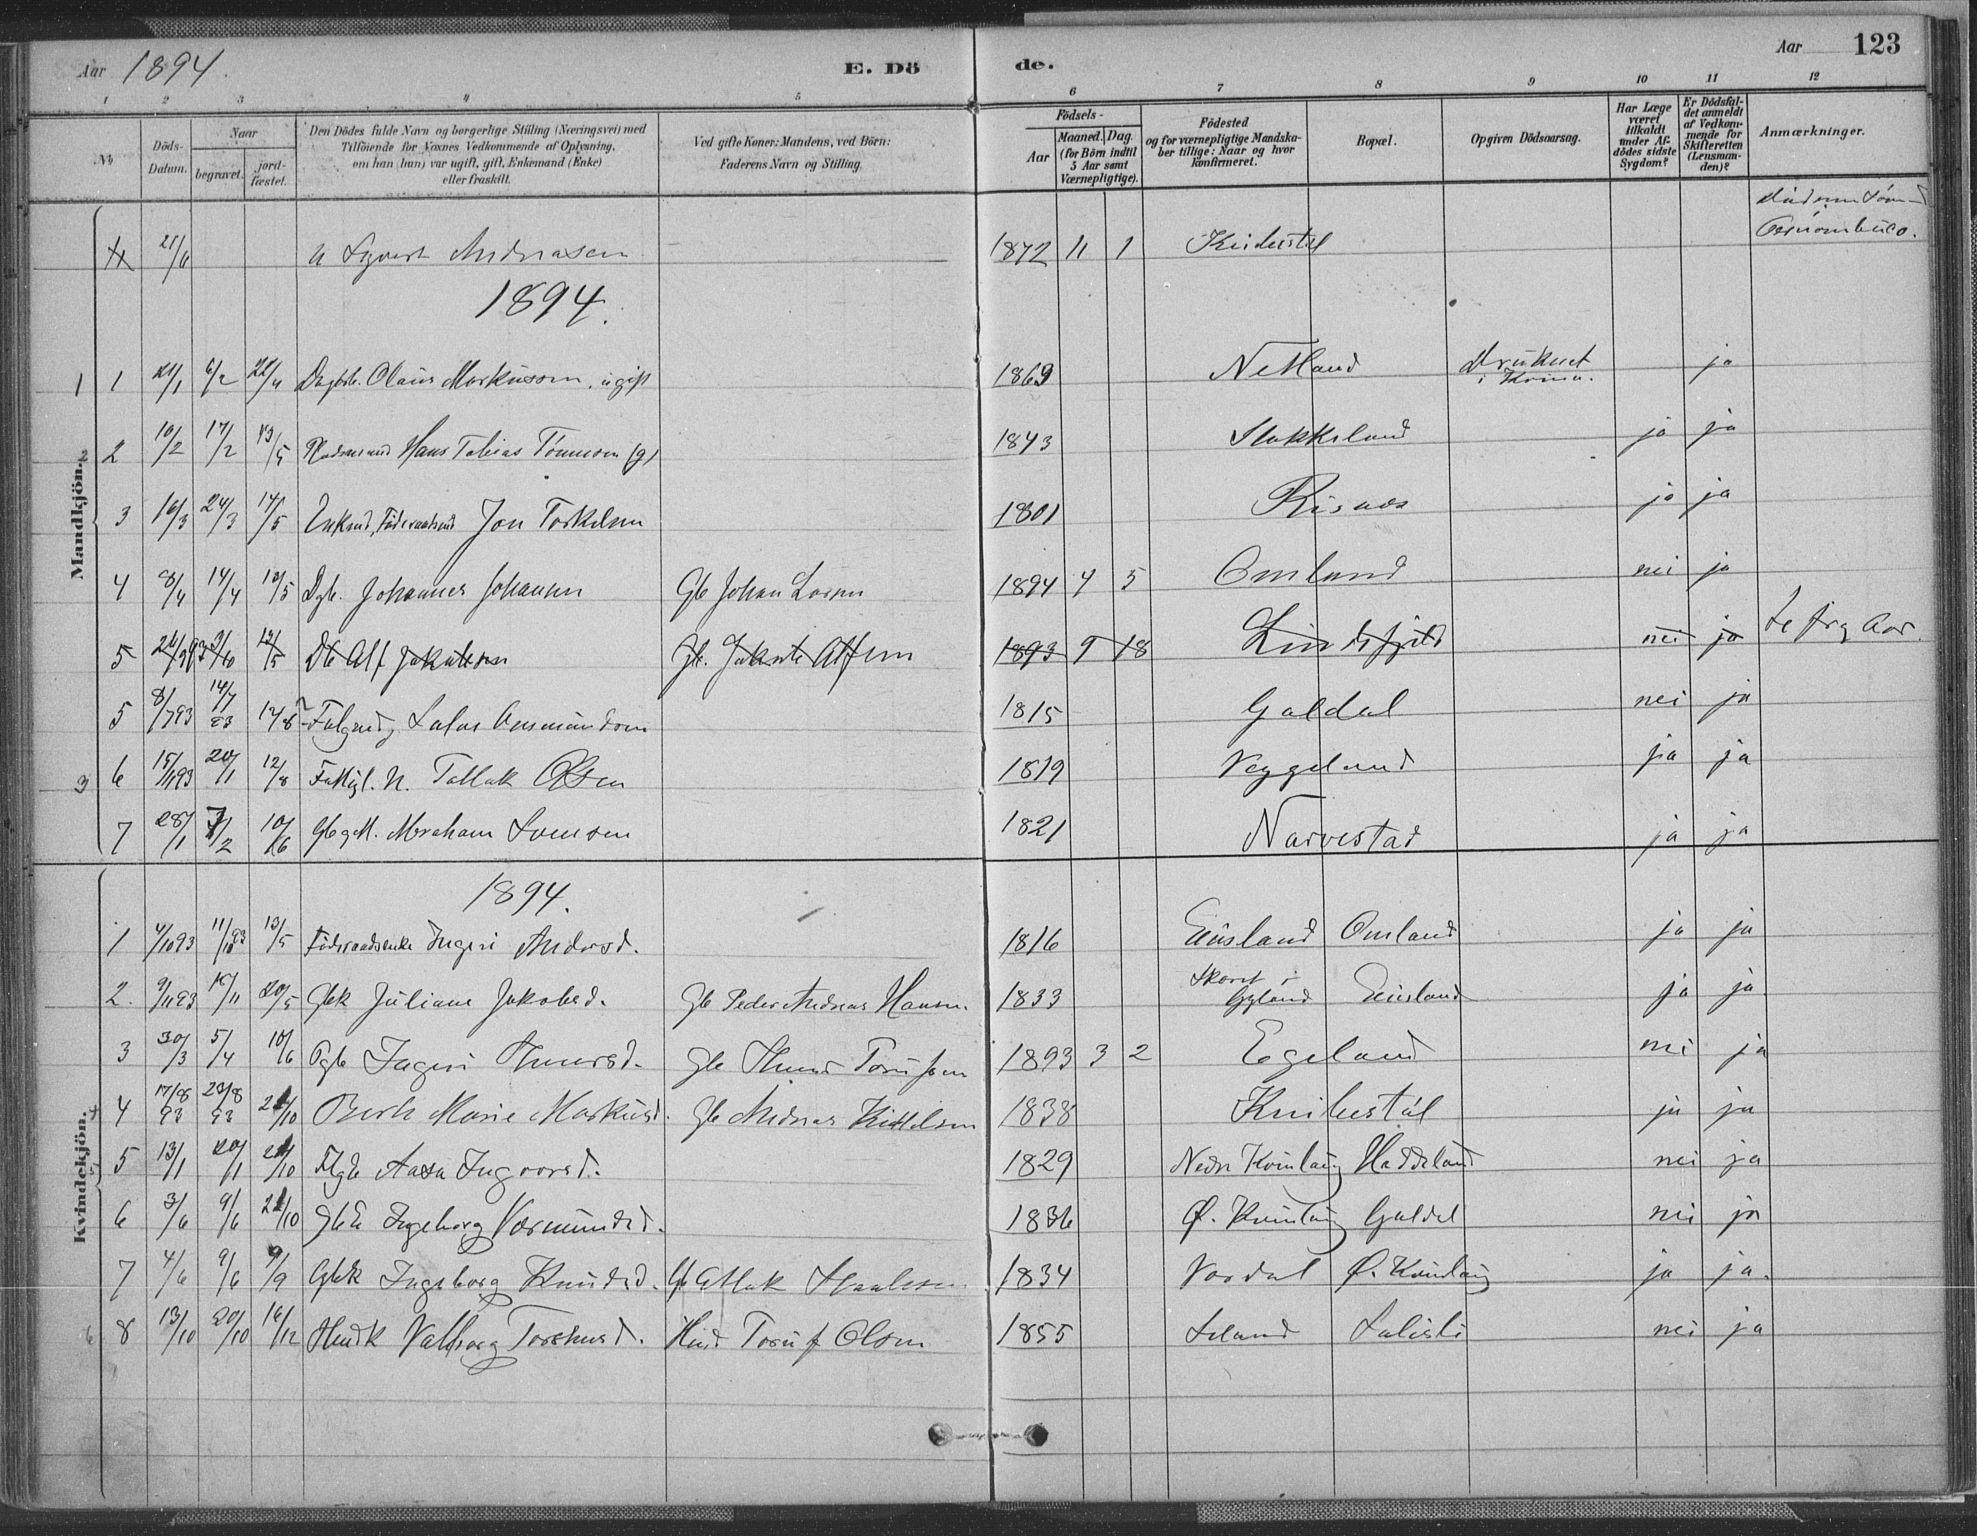 Aar 1894. E. Dö
de. Aar 123
1 2 3 4 5 6 7 8 9 10 11 12
No Döds-Datum. Naar begravet. jord-fæstet. Den Dödes fulde Navn og borgerlige Stilling (Næringsvei) med Tilföiende for Voxnes Vedkommende af Oplysning, om han (hun) var ugift, gift, Enkemand (Enke) eller fraskilt. Ved gifte Koner: Mandens, ved Börn: Faderens Navn og Stilling. Födsels- Aar Maaned. Dag. (for Börn indtil 5 Aar samt Værnepligtige). Födested og for værnepligtige Mandskaber tillige: Naar og hvor konfirmeret. Bopæl. Opgiven Dödsaarsag. Har Læge været tilkaldt under Afdödes sidste Sygdom? Er Dödsfaldet anmeldt af Vedkommende for Skifteretten (Lensmanden)? Anmærkninger.
Mandkjön.
21/6 u Sigvert Andreasen 1872 11 1 Knibestøl
1894.
1 1 24/1 6/2 22/4 Olaus Markussen, ugift 1869 Netland Druknet i Kvina. ja
2 10/2 17/2 13/5 Pladsmand Hans Tobias Tønnesen (g) 1843 Stokkeland ja ja
3 16/3 24/3 14/5 Enkemd, Føderaadsmd Jon Torkelsen 1801 Risnes ja ja
4 8/4 14/4 10/5 Dgb. Johannes Johansen Gb Johan Larsen 1894 4 5 Omland nei ja
5 Alf Jakobsen Gb. Jakob Alfsen 1893 9 18 Lindefjeld nei ja Se frg Aar.
5 8/7 93 14/7 93 12/8 Salve Aasmundsen 1815 Galdal nei ja
3 6 15/11 93 20/1 12/8 Fattigl. N. Tallak Olsen 1819 Veggeland ja ja
7 28/1 3/2 10/6 Gbg M. Abraham Svensen 1821 Narvestad ja ja
Kvindekjön.
1894.
1 4/10 93 11/10 93 13/5 Føderaadsenke Inger Andersd. 1816 Eiesland Omland ja ja
2. 9/11 93 16/11 20/5 Gbk Juliane Jakobsd. Gb Peder Andreas Hansen. 1833 Skoret i Gyland Eiesland ja ja
3 30/3 5/4 10/6 Pgb Ingeri Gb 1893 3 2 Egeland nei ja
4 17/8 93 23/8 93 21/10 Berte Marie Markusd. Gb Andreas Kittelsen 1838 Knibestøl ja ja
5 13/1 20/1 21/10 Aasa Ingvorsd. 1829 Nedre Kvinlaug Haddeland nei ja
6 3/6 9/6 21/10 GbE Ingeborg Vermundsd. 1836 Ø. Kvinlaug Galdal nei ja
7 4/6 9/6 9/9 Gbk Ingeborg Knudsd. Gb Atlak 1834 Vordal Ø. Kvinlaug ja ja.
8 13/10 20/10 16/12 Valborg Torkelsd. Toruf Olsen 1855 Salisli nei ja